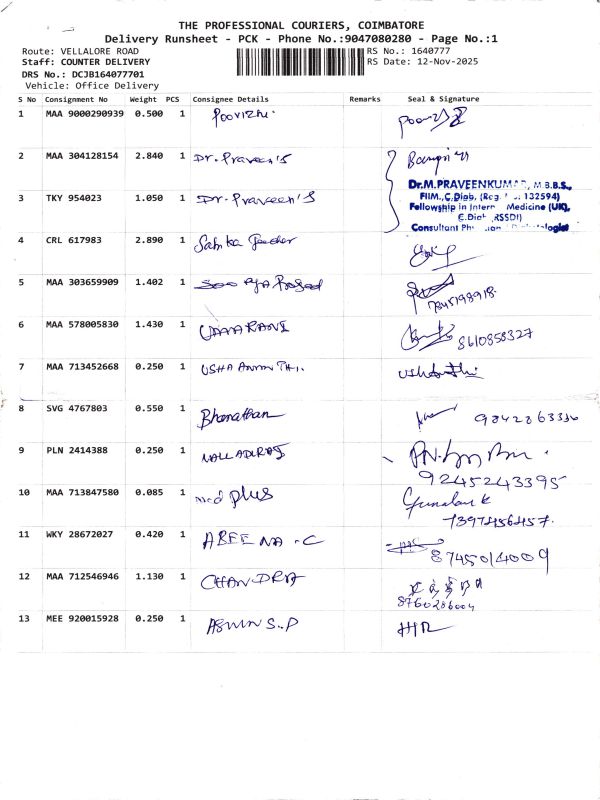 THE PROFESSIONAL COURIERS, COIMBATORE
Delivery Runsheet - PCK - Phone No.:9047080280 - Page No.:1
Route: VELLALORE ROAD
RS No.: 1640777
Staff: COUNTER DELIVERY
RS Date: 12-Nov-2025
DRS No.: DCJB164077701
Vehicle: Office Delivery
S No Consignment No Weight PCS Consignee Details Remarks Seal & Signature
1 MAA 9000290939 0.500 1 Poovizhi
2 MAA 304128154 2.840 1 Dr. Praveen's
Dr.M.PRAVEENKUMAR, M.B.B.S.,
3 TKY 954023 1.050 1 Dr. Praveen's
FIIM.,C.Diab, (Reg. 132594)
Fellowship in Intern Medicine (UK),
C.Diab (RSSDI)
Consultant
4 CRL 617983 2.890 1
5 MAA 303659909 1.402 1
7845198918.
6 MAA 578005830 1.430 1 UMA RANI 8610858327
7 MAA 713452668 0.250 1 USHA
8 SVG 4767803 0.550 1 Bharathan 9842863336
9 PLN 2414388 0.250 1
9245243395
10 MAA 713847580 0.085 1 med plus
7397456457.
11 WKY 28672027 0.420 1 ABEENA .C
8745014009
12 MAA 712546946 1.130 1 CHANDRA
8760286004
13 MEE 920015928 0.250 1 ASWIN S.P